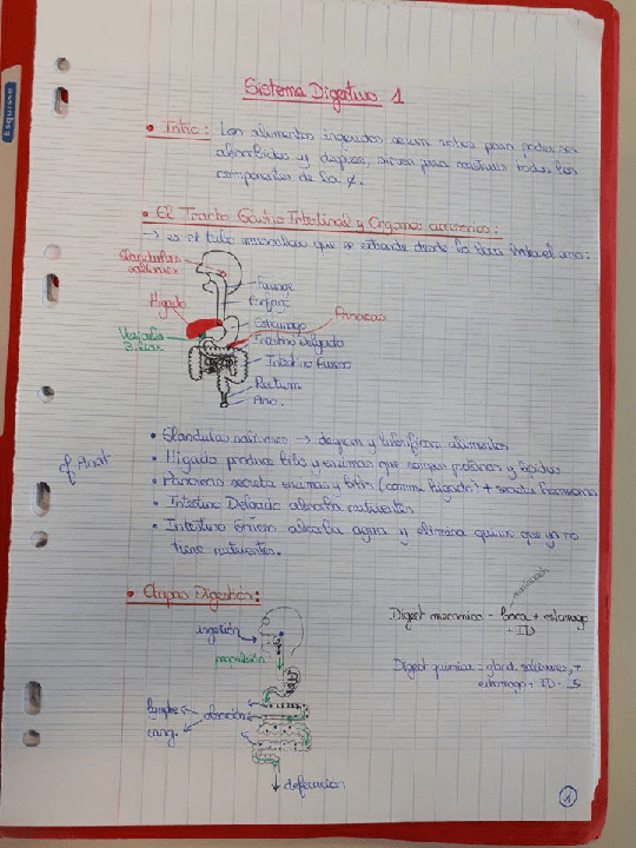 Esquisse
Sistema Digestivo 1
• Intro: Los alimentos ingeridos seran rotos para poder ser
absorbidos y despues, sirven para construir todos los
componentes de la
• El Tracto Gastro Intestinal y Organos accesorios:
→ es el tubo muscular que se extiende desde la boca hasta el ano:
Glandulas
salivares
Higado
Vesicula
Biliar
Faringe
Esofago
Estomago
Pancreas
Intestino Delgado
Intestino Grueso
Rectum
Ano.
• Glandulas salivares → degradan y lubrifican alimentos
cf Anat
• Higado produce bilis y enzimas que rompen proteinas y lipidos
• Pancreas secreta enzimas y bilis (comme higado) + secreta hormonas
• Intestino Delgado absorba nutrientes
• Intestino absorba agua y elimina quimo que ya no
tiene nutrientes.
• Etapas Digestión:
ingestión
propulsión
absorción
lymphe
sang.
defecación
masticación
Digest mecanica = boca + estomago
+ ID
Digest quimica = gland. salivares, +
estomago + ID
1